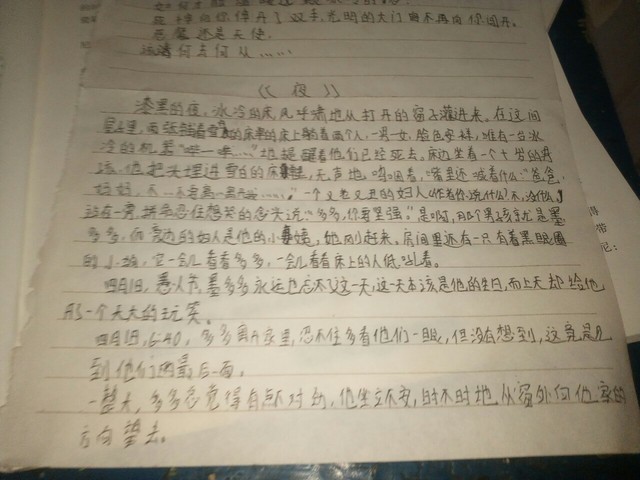 死神向你伸开了双手,光明的大门也不再向你闭开。
恶魔还是天使。
该请何去何从……
《夜》
漆黑的夜,冰冷的床,风呼啸地从打开的窗子灌进来。在这间
屋里,两张的床上躺着两个人,一男一女,脸色安祥,唯有一台冰
冷的机器“哔一哔……”地提醒着他们已经死去。床边坐着一个十岁的男
孩,他把头埋进雪白的床,无声地,呜咽着,嘴里还喊着什么:“爸爸,
妈妈,不……不要离……”一个又老又丑的妇人(作者:你说什么?不,没什么。)
站在一旁,忍住想哭的念头说:“多多,你要坚强。”是啊,那个男孩就是墨
多多,而旁边的妇人是他的小姨,她刚赶来。房间里还有一只有着黑眼圈
的小,它一会儿看看多多,一会儿看看床上的人低吼着。
四月1日,愚人节,墨多多永远也忘不了这一天,这天本该是他的生日,而上天却给他
开一个天大的玩笑。
四月1日,6:40,多多离开家里,忍不住多看他们一眼,但没有想到,这竟是见
到他们的最后一面。
一整天,多多总觉得有点不对劲,他坐立不安,时不时地从窗外向他家的
方向望去。